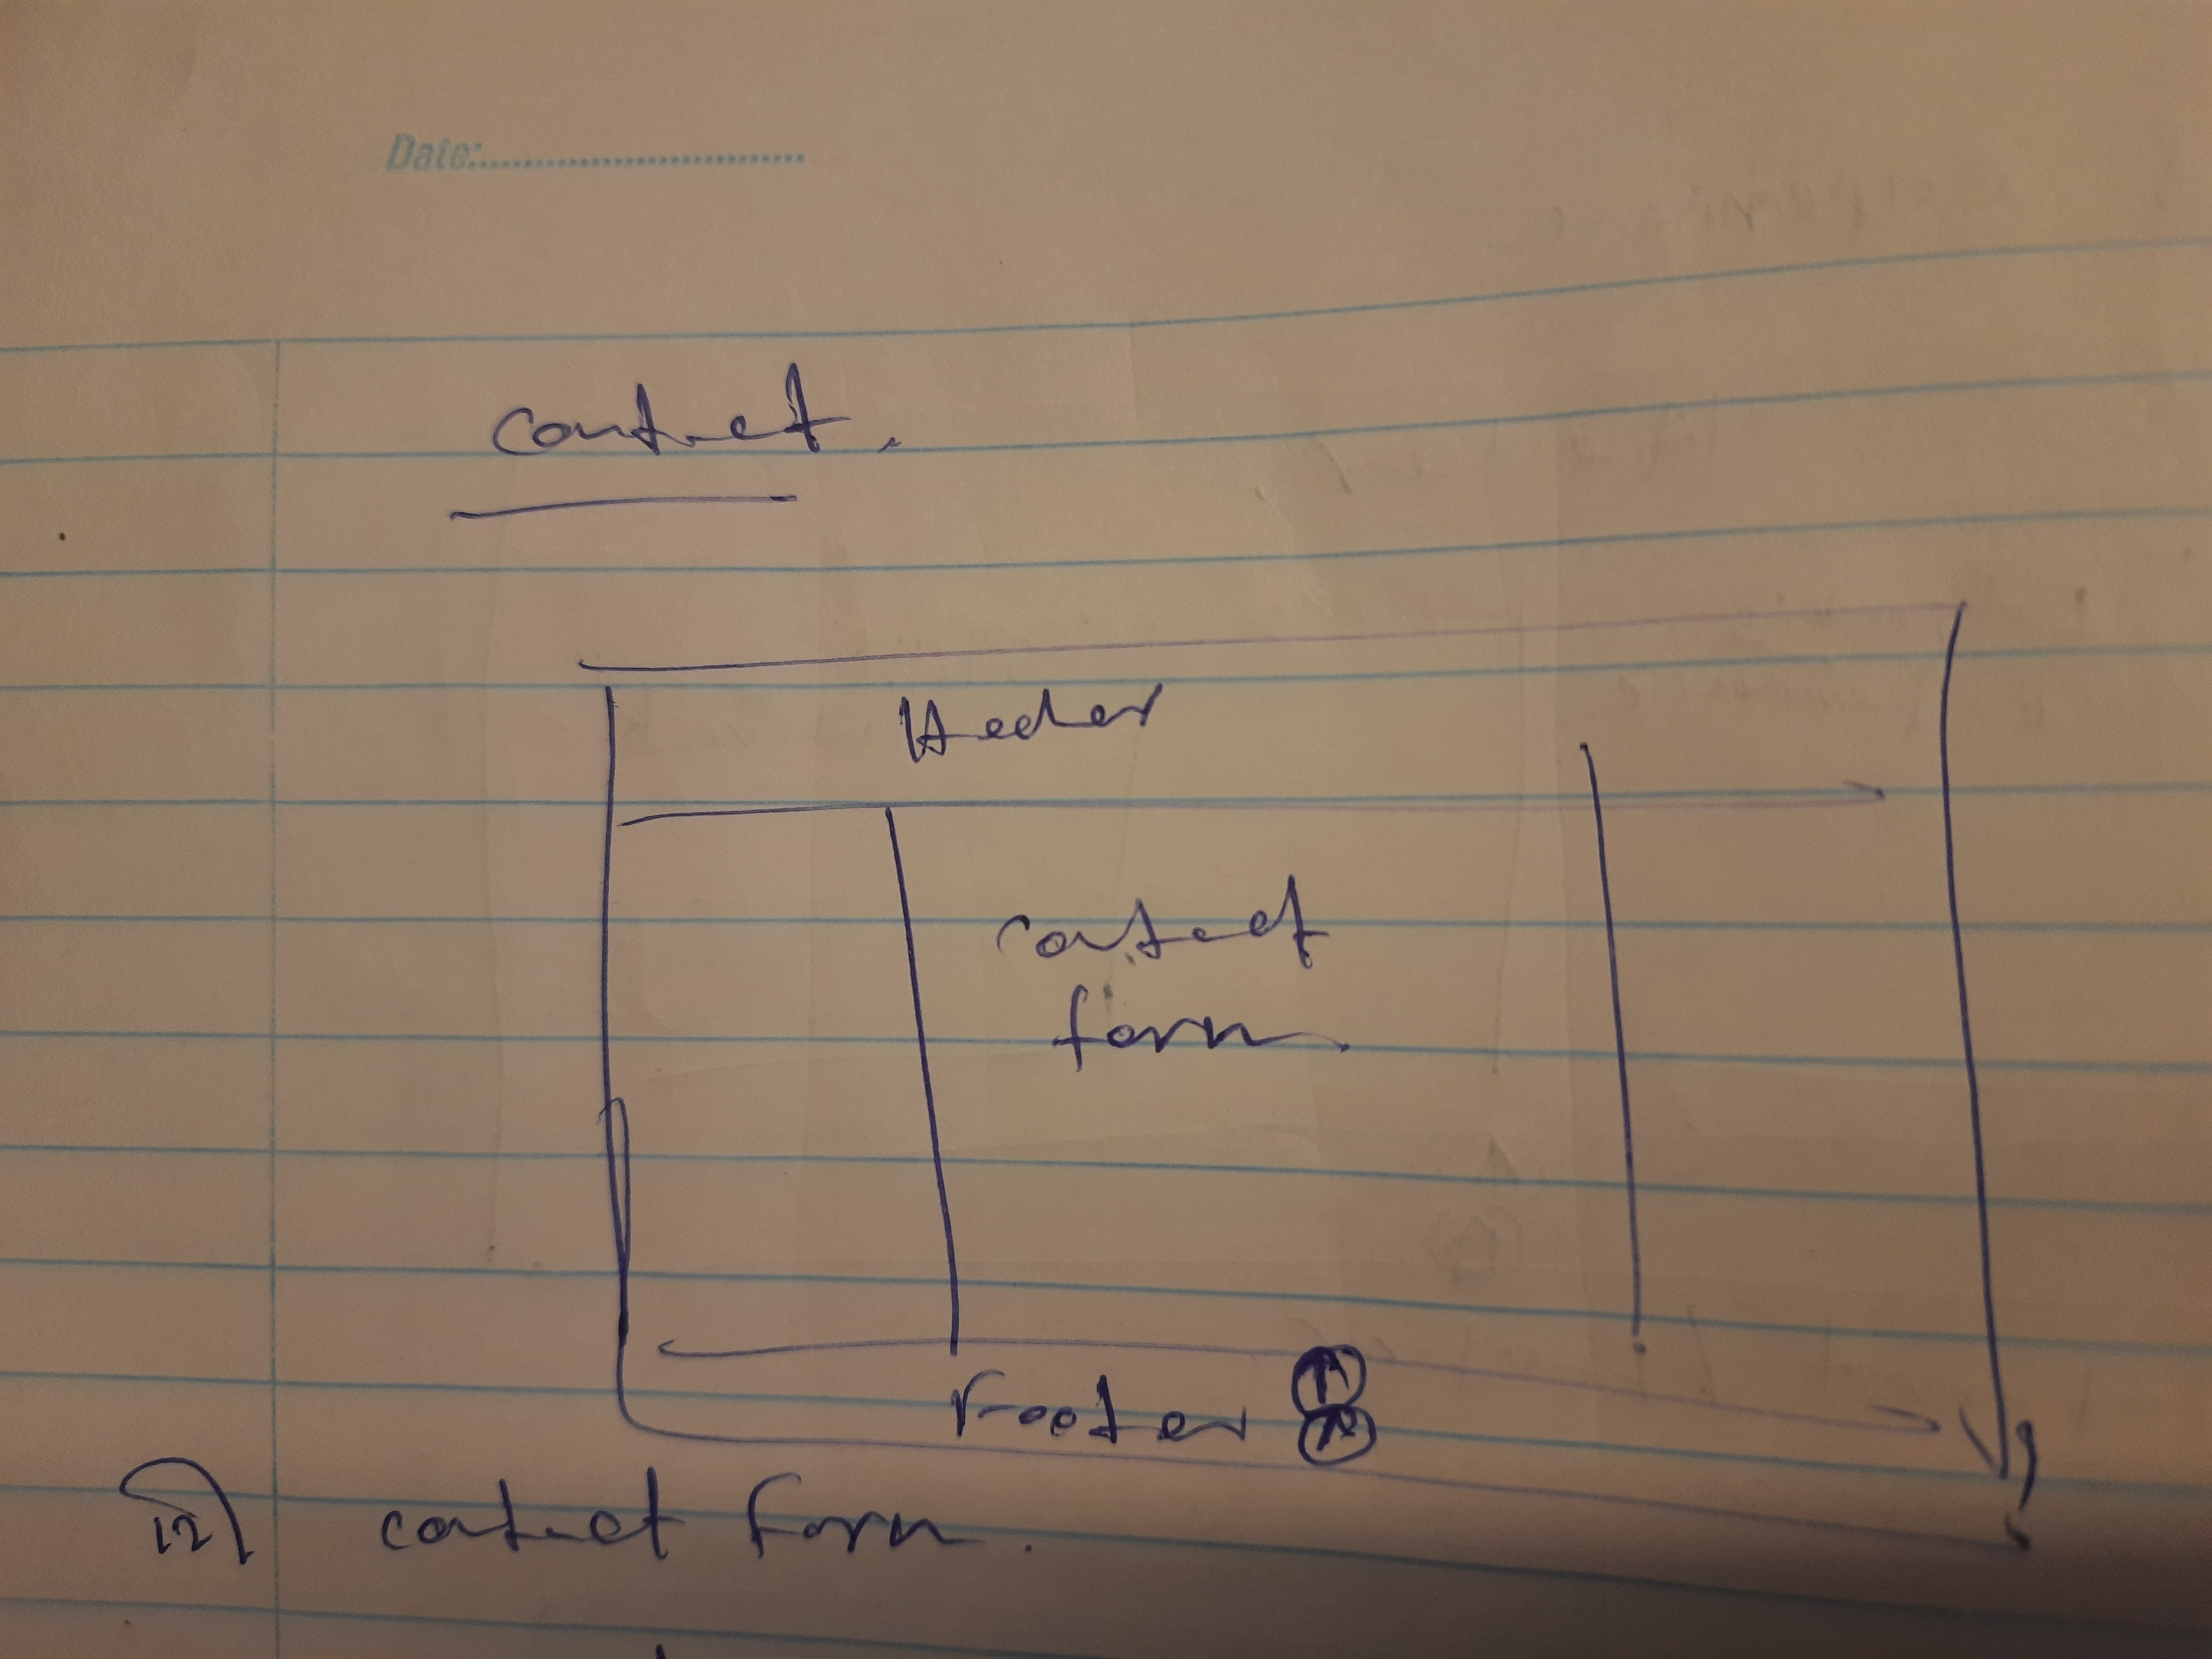 Date:
contact.
Header
contact
form.
Footer
12
contact form.